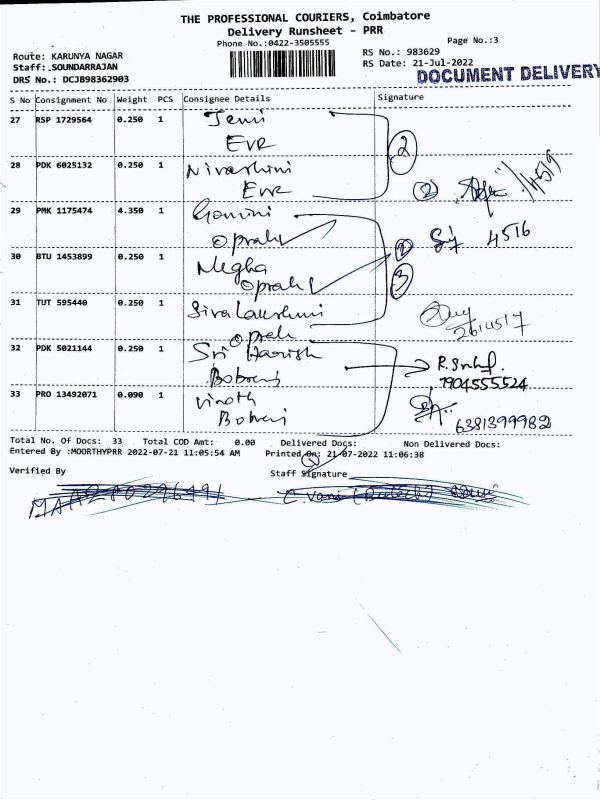 THE PROFESSIONAL COURIERS, Coimbatore
Delivery Runsheet - PRR
Phone No.:0422-3505555
Page No.:3
Route: KARUNYA NAGAR
RS No.: 983629
Staff: SOUNDARRAJAN
RS Date: 21-Jul-2022
DRS No.: DCJB98362903
DOCUMENT DELIVERY
S No Consignment No Weight PCS Consignee Details Signature
27 RSP 1729564 0.250 1 Jemi
EVR
2
28 PDK 6025132 0.250 1 Nivashini
EVR
2
4519
29 PMK 1175474 4.350 1 Gomini
Oprah
4516
30 BTU 1453899 0.250 1 Megha
Oprah
3
31 TUT 595440 0.250 1 Siva Lakshmi
Oprah
32 PDK 5021144 0.250 1 Sri Harish
7904555524
33 PRO 13492071 0.090 1 Vinoth
6381399982
Total No. Of Docs: 33 Total COD Amt: 0.00 Delivered Docs: Non Delivered Docs:
Entered By :MOORTHYPRR 2022-07-21 11:05:54 AM Printed On: 21-07-2022 11:06:38
Verified By Staff Signature